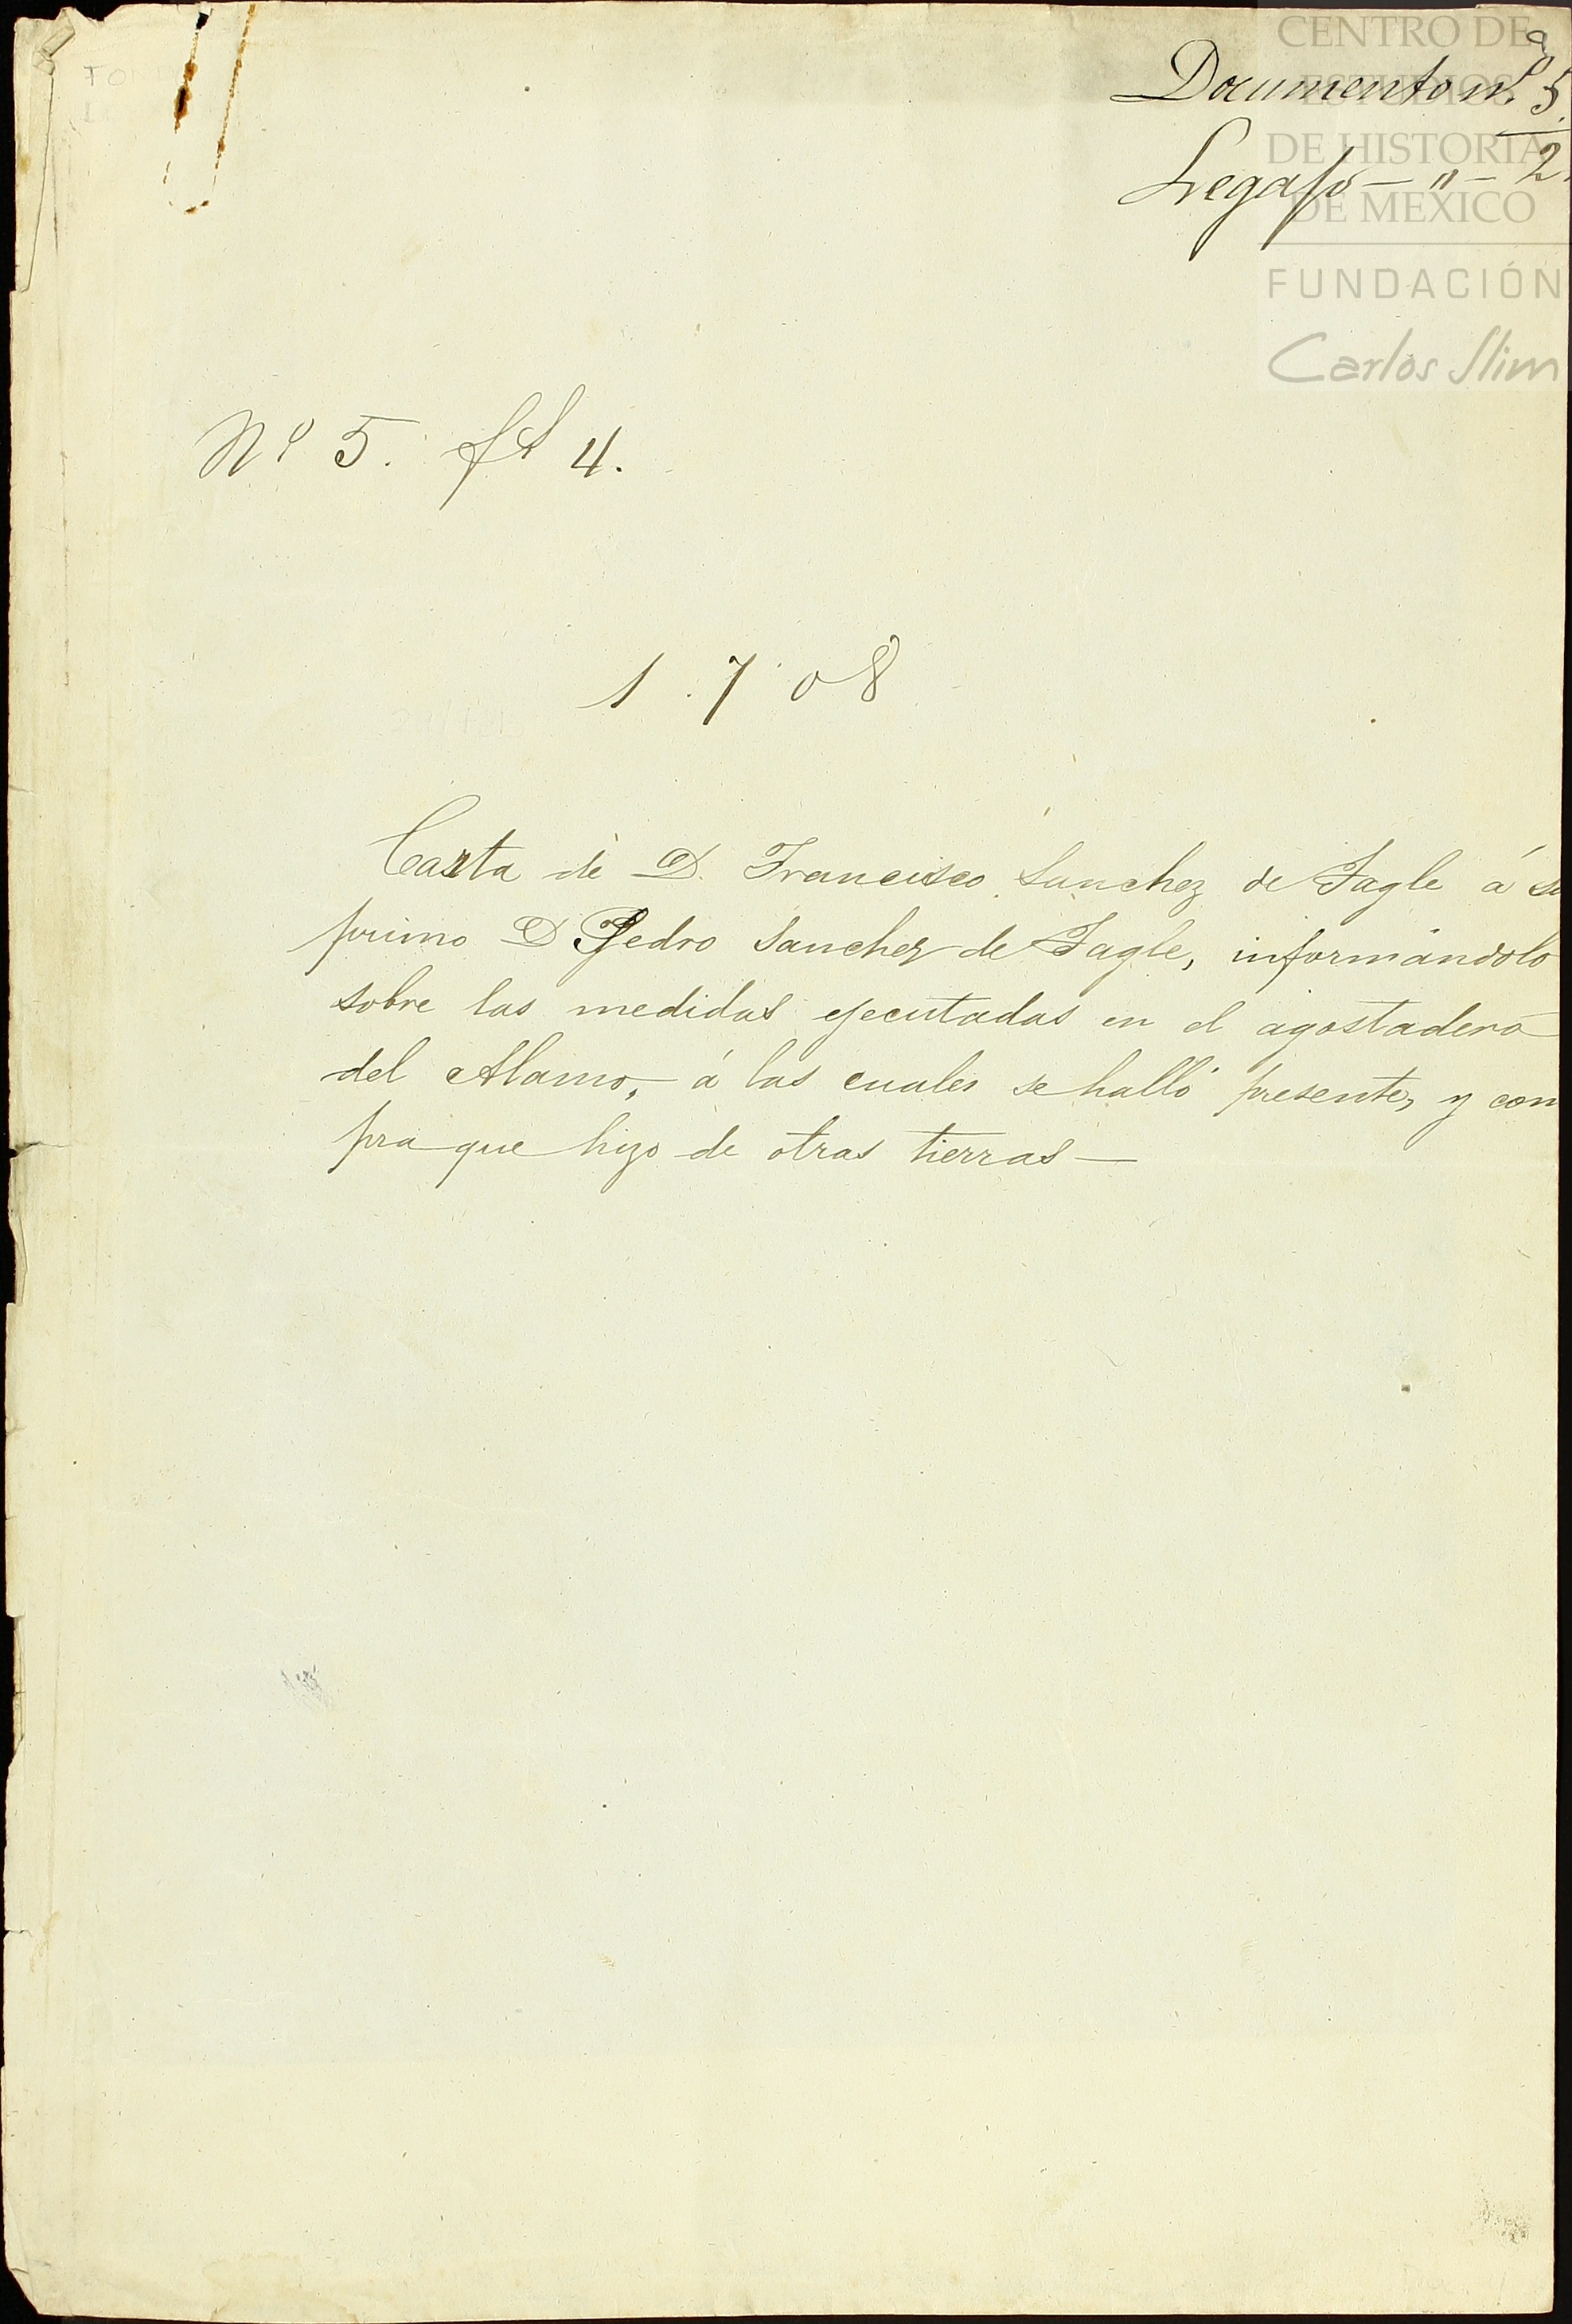 CENTRO DE
ESTUDIOS
DE HISTORIA
DE MEXICO
FUNDACIÓN
Carlos Slim
Documento nº 5.
Legajo — " — 2.
Nº 5. fs 4.
1.708
Carta de D. Francisco Sanchez de Tagle á su
primo D Pedro Sanchez de Tagle, informándolo
sobre las medidas ejecutadas en el agostadero
del Alamo, á las cuales se halló presente, y com
pra que hizo de otras tierras—